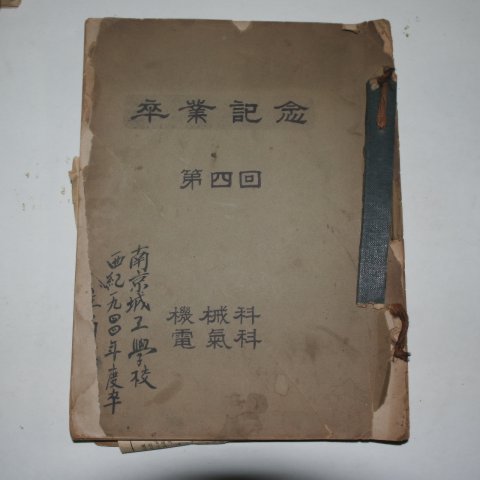 卒業記念
第四回
機械科
電氣科
南京城工學校
西紀一九四四年度卒